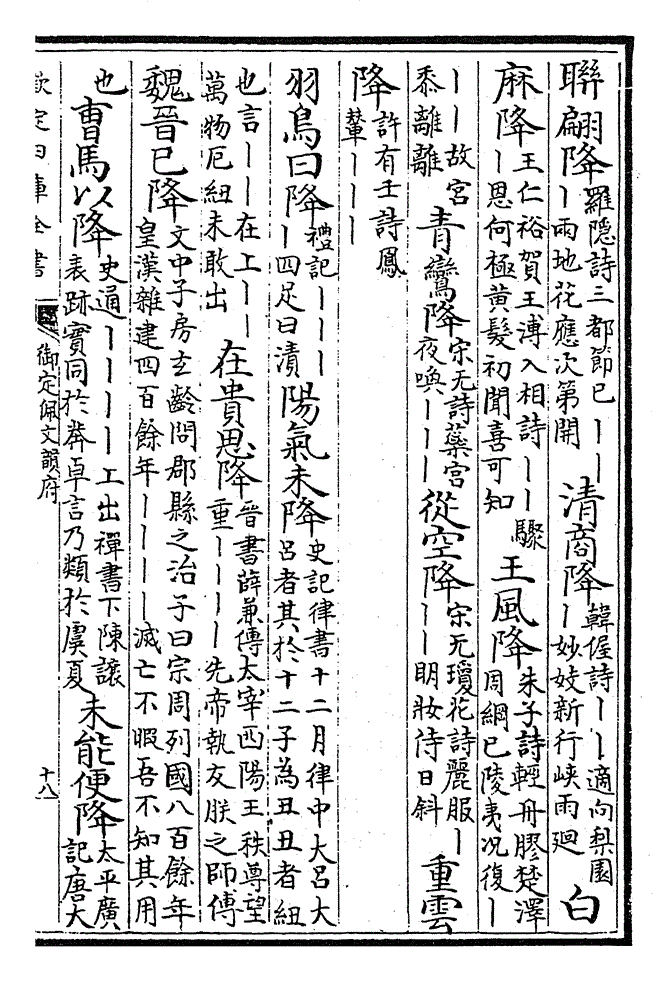 聯翩降羅隱詩三都節已丨丨丨雨地花應次第開 清商降韓偓詩丨丨丨適向梨園丨妙妓新行峽雨廻 白
麻降王仁裕賀王溥入相詩丨丨丨恩何極黄髮初聞喜可知 驟王風降朱子詩輕舟膠楚澤周綱已陵夷况復丨
丨丨故宫黍離離 青鸞降宋无詩蘂宫夜喚丨丨丨 從空降宋无瓊花詩麗服丨丨丨明妝侍日斜 重雲
降許有壬詩鳳輦丨丨丨
羽鳥曰降禮記丨丨丨丨四足曰漬 陽氣未降史記律書十二月律中大呂大呂者其於十二子為丑丑者紐
也言丨丨在上丨丨萬物厄紐未敢出 在貴思降晉書薛兼傳太宰西陽王秩尊望重丨丨丨丨先帝執友朕之師傅
魏晉已降文中子房玄齡問郡縣之治子曰宗周列國八百餘年皇漢雜建四百餘年丨丨丨丨滅亡不暇吾不知其用
也 曹馬以降史通丨丨丨丨上出禪書下陳讓表跡實同於莽卓言乃類於虞夏 未能便降太平廣記唐大
欽定四庫全書
御定佩文韻府
十八